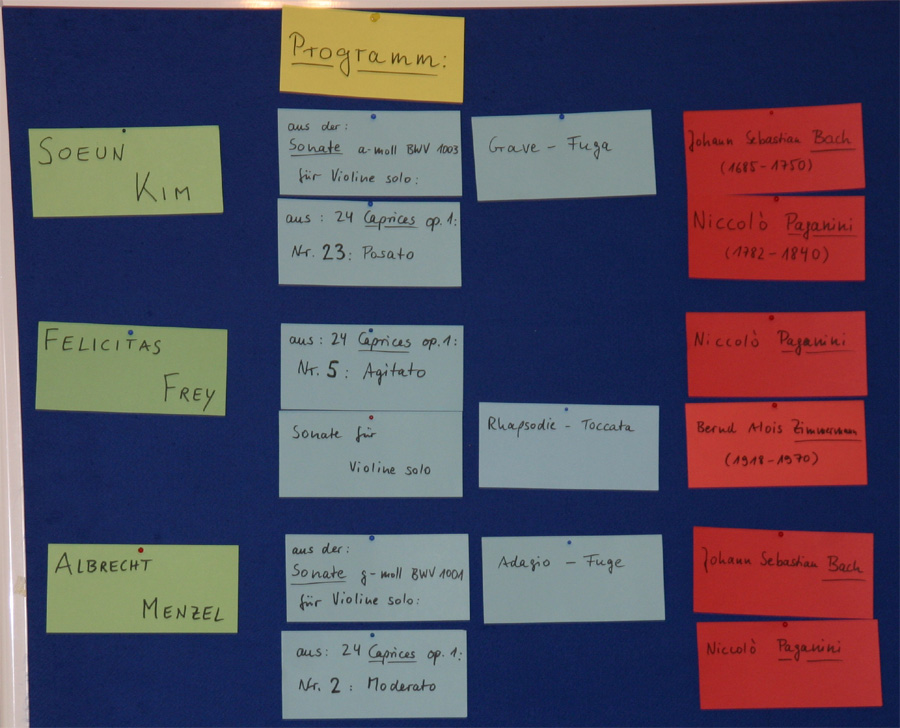 Programm:
SOEUN
KIM
aus der:
Sonate a-moll BWV 1003
für Violine solo:
Grave - Fuga
Johann Sebastian Bach
(1685-1750)
aus: 24 Caprices op. 1:
Nr. 23: Posato
Niccolò Paganini
(1782-1840)
FELICITAS
FREY
aus: 24 Caprices op. 1:
Nr. 5: Agitato
Niccolò Paganini
Sonate für
Violine solo
Rhapsodie - Toccata
Bernd Alois Zimmermann
(1918-1970)
ALBRECHT
MENZEL
aus der:
Sonate g-moll BWV 1001
für Violine solo:
Adagio - Fuge
Johann Sebastian Bach
aus: 24 Caprices op. 1:
Nr. 2: Moderato
Niccolò Paganini